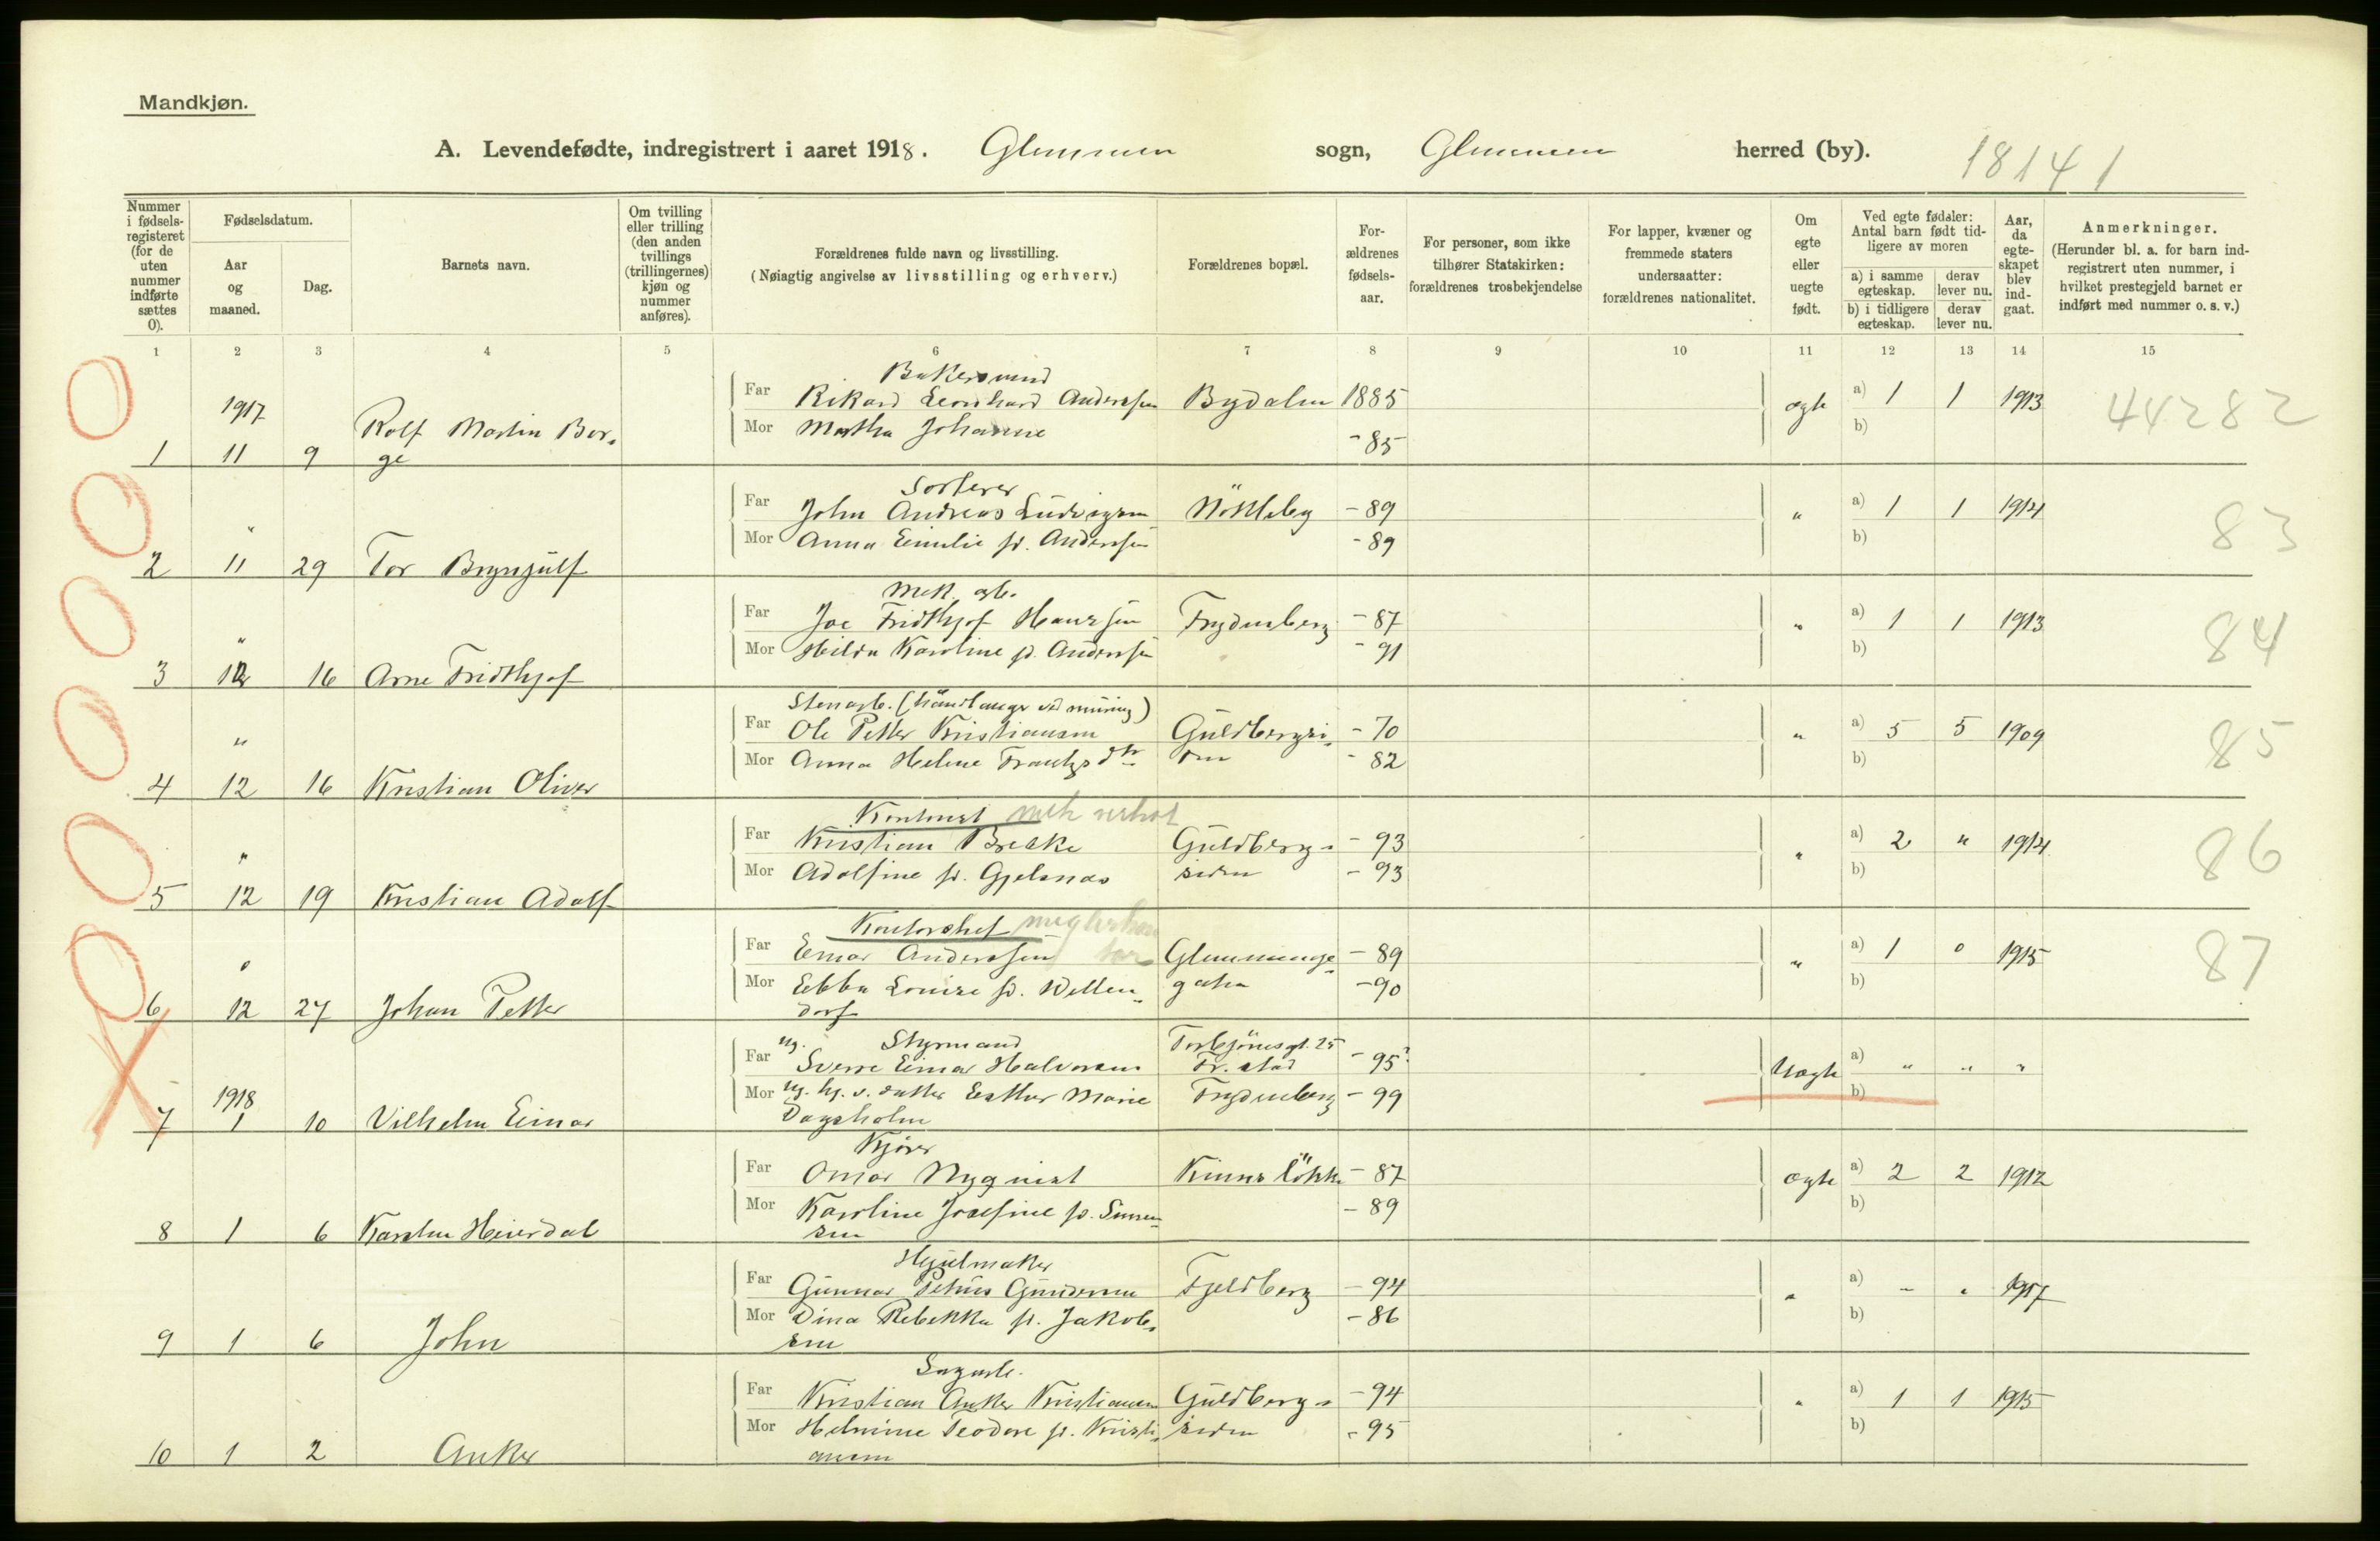 Mandkjøn.
A. Levendefødte, indregistrert i aaret 1918. Glemmen sogn, Glemmen herred (by). 18141
Nummer i fødsels-registeret (for de uten nummer indførte sættes 0).
Fødselsdatum.
Aar og maaned.
Dag.
Barnets navn.
Om tvilling eller trilling (den anden tvillings (trillingernes) kjøn og nummer anføres).
Forældrenes fulde navn og livsstilling.
(Nøiagtig angivelse av livsstilling og erhverv.)
Forældrenes bopæl.
For-ældrenes fødsels-aar.
For personer, som ikke tilhører Statskirken: forældrenes trosbekjendelse
For lapper, kvæner og fremmede staters undersaatter: forældrenes nationalitet.
Om egte eller uegte født.
Ved egte fødsler: Antal barn født tid-ligere av moren
a) i samme egteskap. derav lever nu.
b) i tidligere egteskap. derav lever nu.
Aar, da egte-skapet blev ind-gaat.
Anmerkninger.
(Herunder bl. a. for barn ind-registrert uten nummer, i hvilket prestegjeld barnet er indført med nummer o. s. v.)
1 2 3 4 5 6 7 8 9 10 11 12 13 14 15
Bakersvend
1917 Far Rikard Leonhard Anderssen Bydalen 1885 ægte a) 1 1 1913 44282
Rolf Martin Bor-
Mor Martha Johanne - 85 b)
1 11 9 ge
Sorterer
" Far John Andreas Ludvigsen - 89 " a) 1 1 1914 83
Mor Anna Emilie f. Anderssen - 89 b)
2 11 29 Tor Brynjulf
Mek. arb.
" Far Fridthjof Hanssen Frydenberg - 87 " a) 1 1 1913 84
Mor Hilda Karoline f. Anderssen - 91 b)
3 12 16 Arne Fridthjof
Stenarb. (håndlanger ved muring)
" Far Ole Petter Kristiansen Guldbergsi- - 70 " a) 5 5 1909 85
Mor Anna Helene Frantzsdtr den - 82 b)
4 12 16 Kristian Oliver
Kontorist mek verkst
" Far Kristian Brekke Guldbergs- - 93 " a) 2 " 1914 86
Mor Adolfine f. Gjelsnæs siden - 93 b)
5 12 19 Kristian Adolf
Kontorchef meglerkon
" Far Einar Anderssen tor Glemminge- - 89 " a) 1 0 1915 87
Mor Ebba Louise f. Wellen- gaten - 90 b)
6 12 27 Johan Petter dorf
ug. Styrmand Torbjörnsgt. 25
Far Sverre Einar Halvorsen Fr.stad - 95? Uægte a) " " "
1918 Mor ug. hj. v. datter Esther Marie Frydenberg - 99 b)
7 1 10 Vilhelm Einar Dagsholm
Kjører
Far Omar Nyquist - 87 ægte a) 2 2 1912
Mor Karoline Josefine f. Simen- - 89 b)
8 1 6 Karsten Heierdal sen
Hjulmaker
Far Gunnar Petrus Gundersen Fjeldberg - 94 " a) " " 1917
Mor Dina Rebekka f. Jakob- - 86 b)
9 1 6 John sen
Sagarb.
Far Kristian Anker Kristiansen Guldbergs- - 94 " a) 1 1 1915
Mor Helmine Teodore f. Kristi- siden - 95 b)
10 1 2 Anker ansen